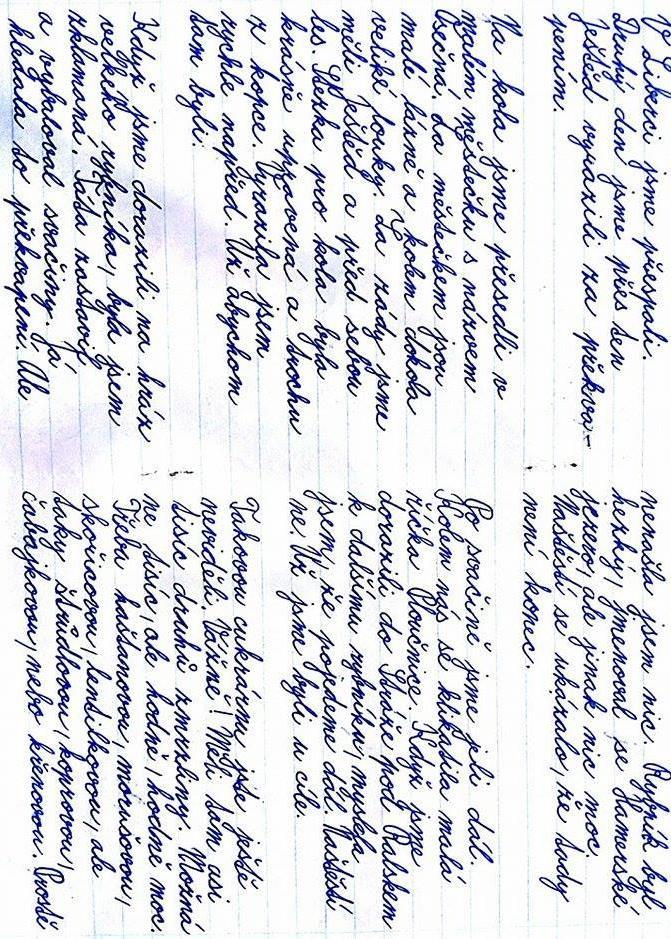 V Liberci jsme přespali.
Druhý den jsme přes ten
Ještěd vyrazili za překva-
pením.
Na kola jsme přesedli v
malém městečku s názvem
Osečná. Za městečkem jsou
malé lázně a kolem dokola
veliké louky. Za zády jsme
měli Ještěd a před sebou
les. Stezka pro kola byla
krásně upravená a trochu
z kopce. Vyrazila jsem
rychle napřed. Už abychom
tam byli.
Když jsme dorazili na hráz
velkého rybníka, byla jsem
zklamaná. Táta zastavil
a vybaloval svačiny. Já
hledala to překvapení. Ale
nenašla jsem nic. Rybník byl
hezký, jmenoval se Hamerské
jezero, ale jinak nic moc.
Naštěstí se ukázalo, že tady
není konec.
Po svačině jsme jeli dál.
Kolem nás se klikatila malá
říčka Ploučnice. Když jsme
dorazili do Stráže pod Ralskem
k dalšímu rybníku, myslela
jsem, že pojedeme dál. Naštěstí
ne. Už jsme byli u cíle.
Takovou cukrárnu jste ještě
neviděli. Vážně! Měli tam asi
tisíc druhů zmrzliny. Možná
ne tisíc, ale hodně, hodně moc.
Třeba kaštanovou, morušovou,
skořicovou, lentilkovou, ale
taky štrůdlovou, koprovou,
čabajkovou, nebo křenovou. Prostě